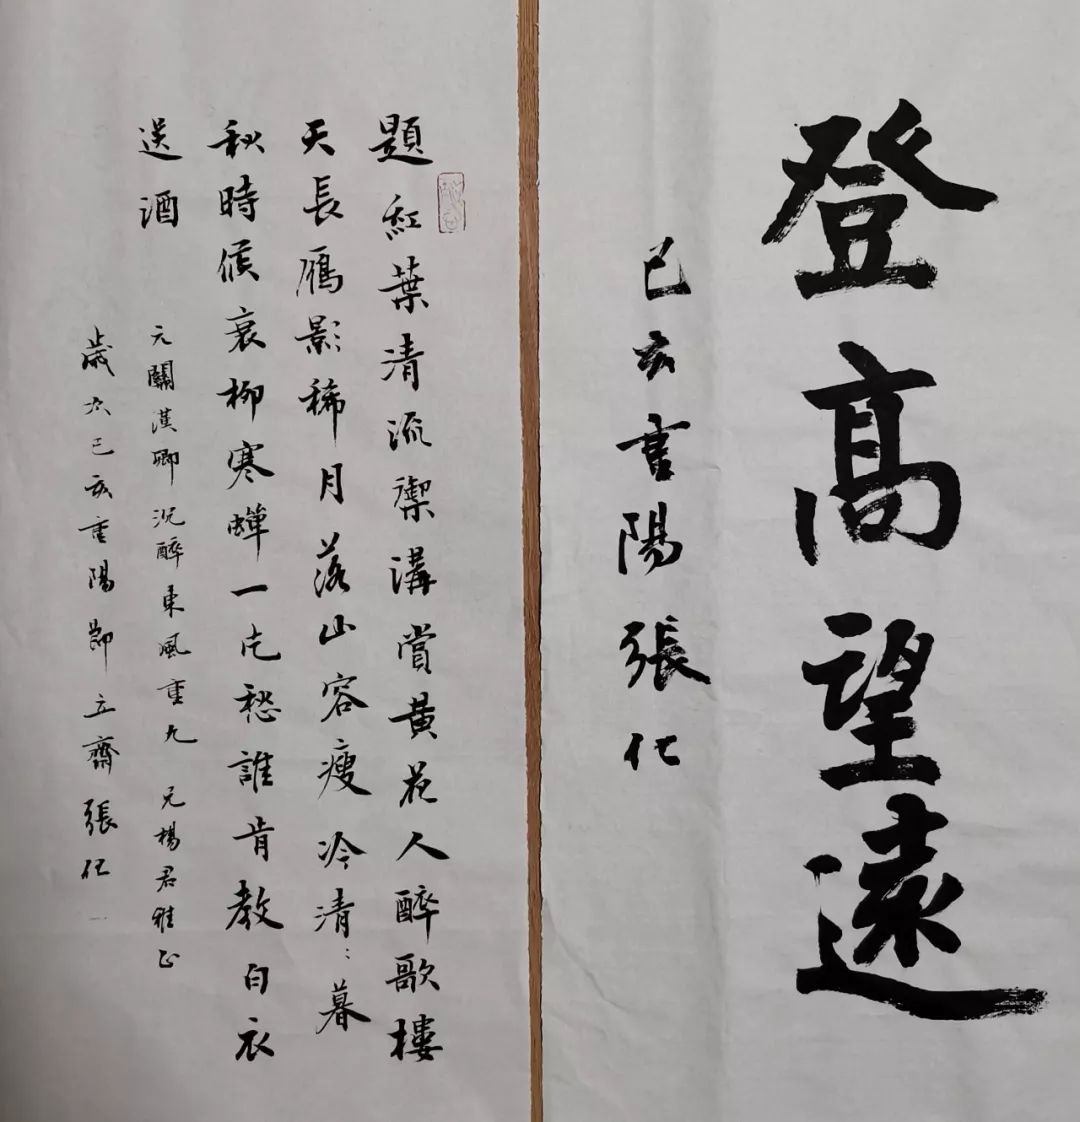 登高望遠
己亥重陽張
題紅葉清流禦溝賞黄花人醉歌樓
天長鴈影稀月落山容瘦冷清：暮
秋時候衰柳寒蟬一片愁誰肯教白衣
送酒
元關漢卿沉醉東風重九 元楊君雅正
歲次己亥重陽節立齋張